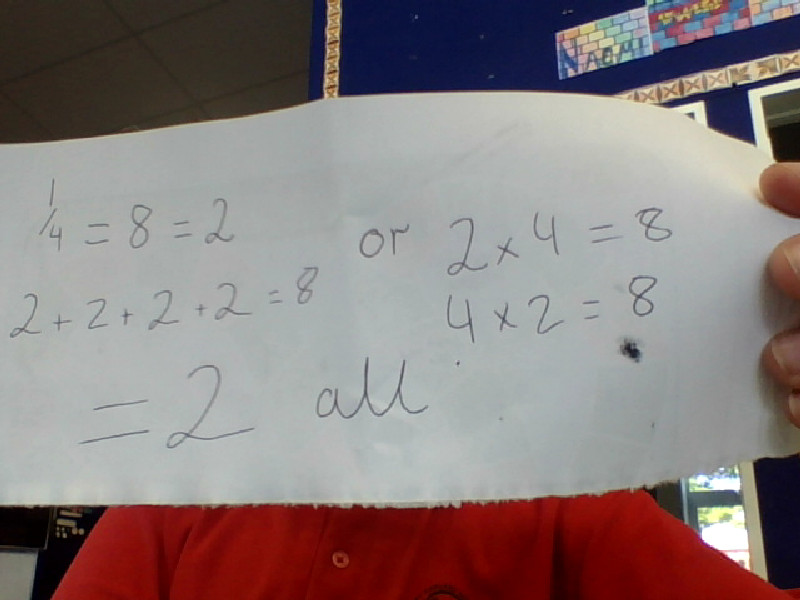 NAOMI
1/4 = 8 = 2 or 2 × 4 = 8
2 + 2 + 2 + 2 = 8 4 × 2 = 8
= 2 all